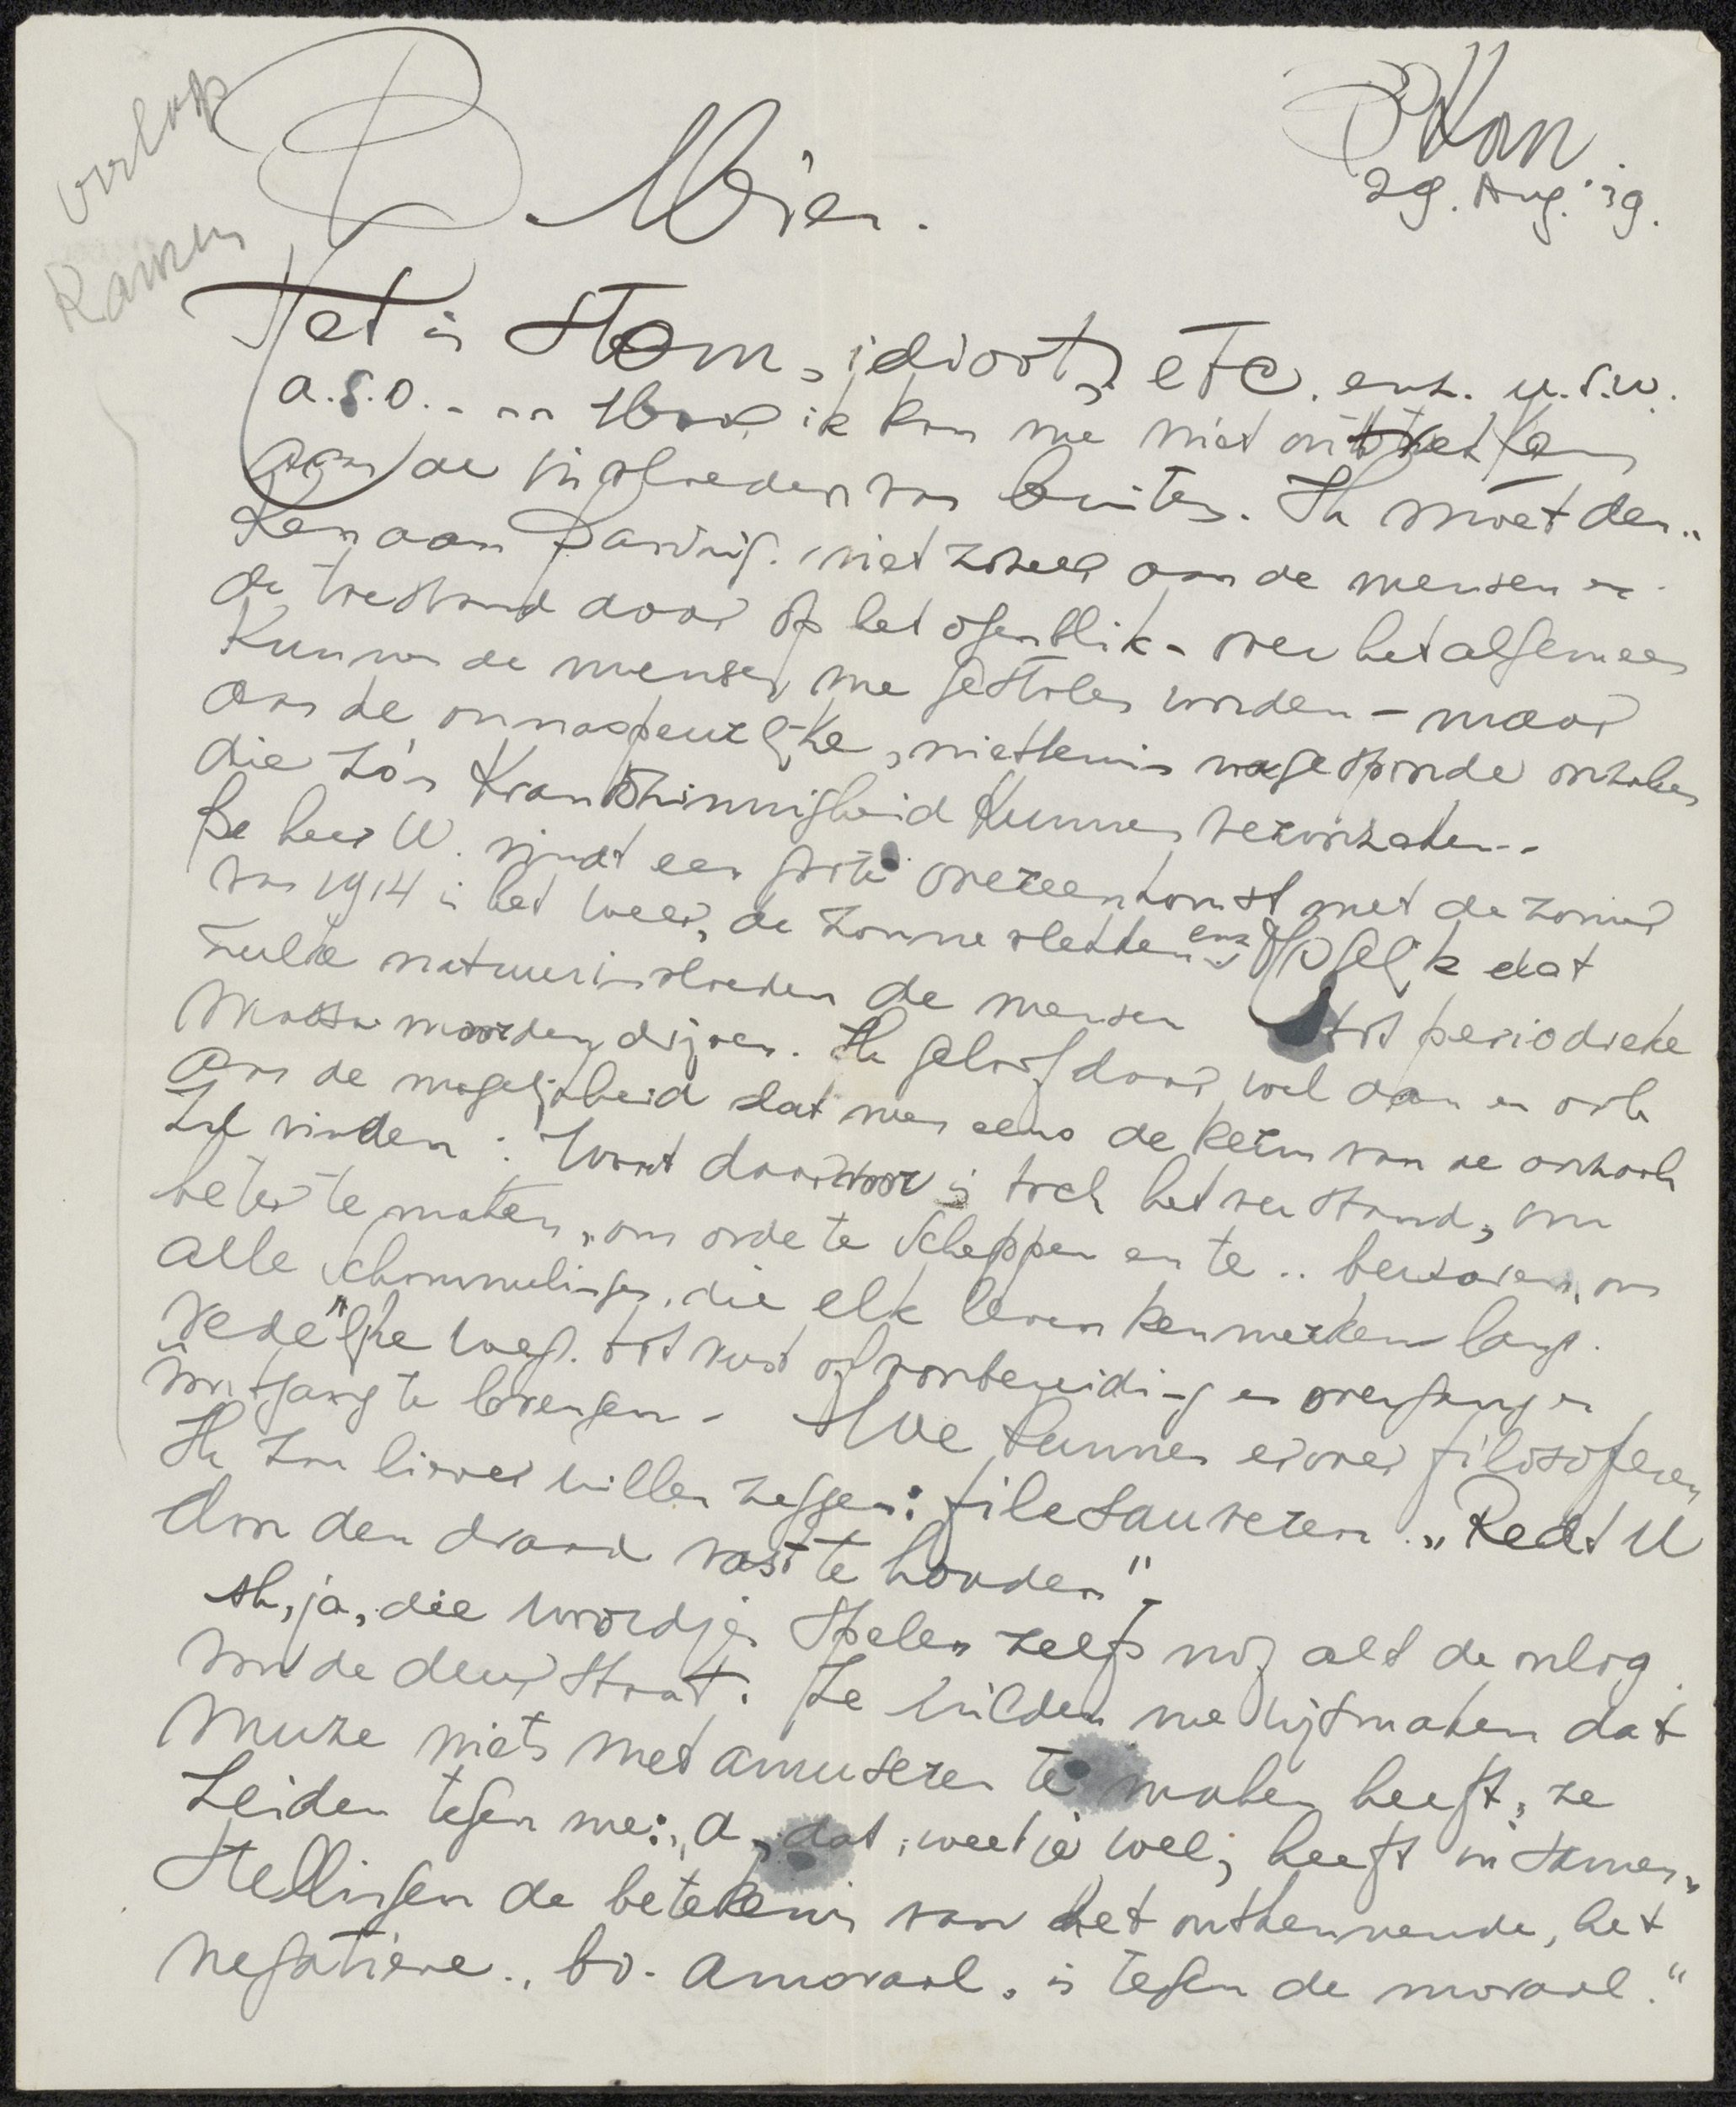 oorlog
Kamer
B Kan
29. Aug. '39.
D. Mien.
Het is stom, idioot, etc. enz. u.s.w.
a.s.o. - maar ik kan me niet onttrekken
aan de invloeden van buiten. Ik moet den„
ken aan Danzig. niet zozeer aan de mensen en
de toestand daar op het ogenblik - over het algemeen
kunnen de mensen me gestolen worden - maar
aan de onnaspeurlijke, niettemin nagespoorde oorzaken
die zó'n krankzinnigheid kunnen veroorzaken..
De heer W. vindt een grote overeenkomst met de zomer
van 1914 in het weer, de zonnevlekken enz. Mogelijk dat
zulke natuurinvloeden de mensen tot periodieke
massamoorden drijven. Ik geloof daar wel aan en ook
aan de mogelijkheid dat men eens de kern van de oorzaak
zal vinden: Want daarvoor is toch het verstand, om
beter te maken, om orde te scheppen en te .. bewaren, om
alle schommelingen, die elk leven kenmerken langs
redelijke weg. tot rust of voorbereiding en overgang en
voortgang te brengen - We kunnen erover filosoferen
Ik zou liever willen zeggen: filesauseren. „Redt U
door den draad vast te houden".
Ah, ja, die woordjes spelen zelfs nog als de oorlog
voor de deur staat. Ze wilden me wijsmaken dat
muze niets met amuseren te maken heeft, ze
zeiden tegen me: „a, dat, weet je wel, heeft in samen„
stellingen de betekenis van het ontkennende, het
negatieve., bv. amoraal, is tegen de moraal."